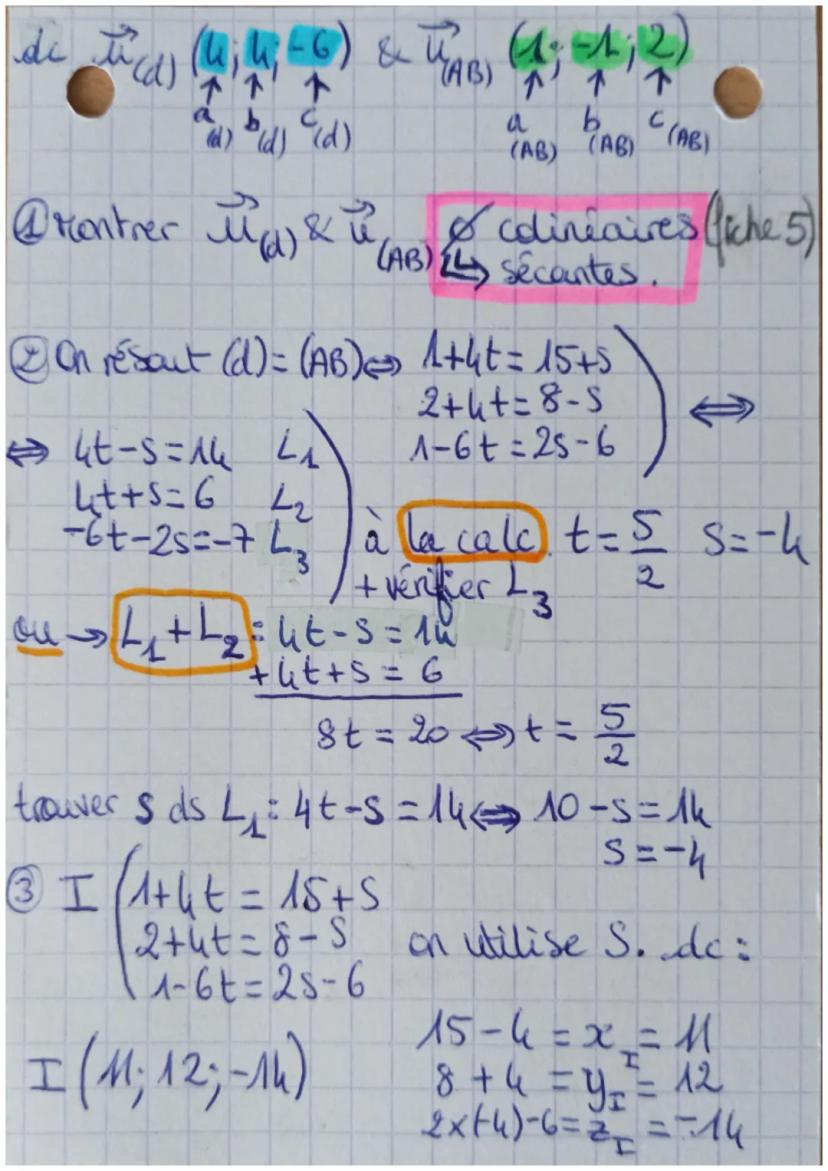 dc u⃗(d) (4; 4; -6) & u⃗(AB) (1; -1; 2)
↑ ↑ ↑ ↑ ↑ ↑
a(d) b(d) c(d) a(AB) b(AB) c(AB)
① Montrer u⃗(d) & u⃗(AB) ∅ colinéaires (fiche 5)
↳ sécantes.
② On résout (d) = (AB) ⇔ 1+4t = 15+s
2+4t = 8-s ⇔
1-6t = 2s-6
⇔ 4t-s=14 L1
4t+s=6 L2
-6t-2s=-7 L3 à la calc. t = 5/2 s=-4
+ vérifier L3
ou → L1+L2 : 4t-s = 14
+4t+s = 6
8t = 20 ⇔ t = 5/2
trouver s ds L1 : 4t-s = 14 ⇔ 10-s=14
s=-4
③ I ( 1+4t = 15+s
2+4t = 8-s on utilise S. dc :
1-6t = 2s-6
15-4 = xI = 11
I (11; 12; -14) 8+4 = yI = 12
2×(-4)-6 = zI = -14